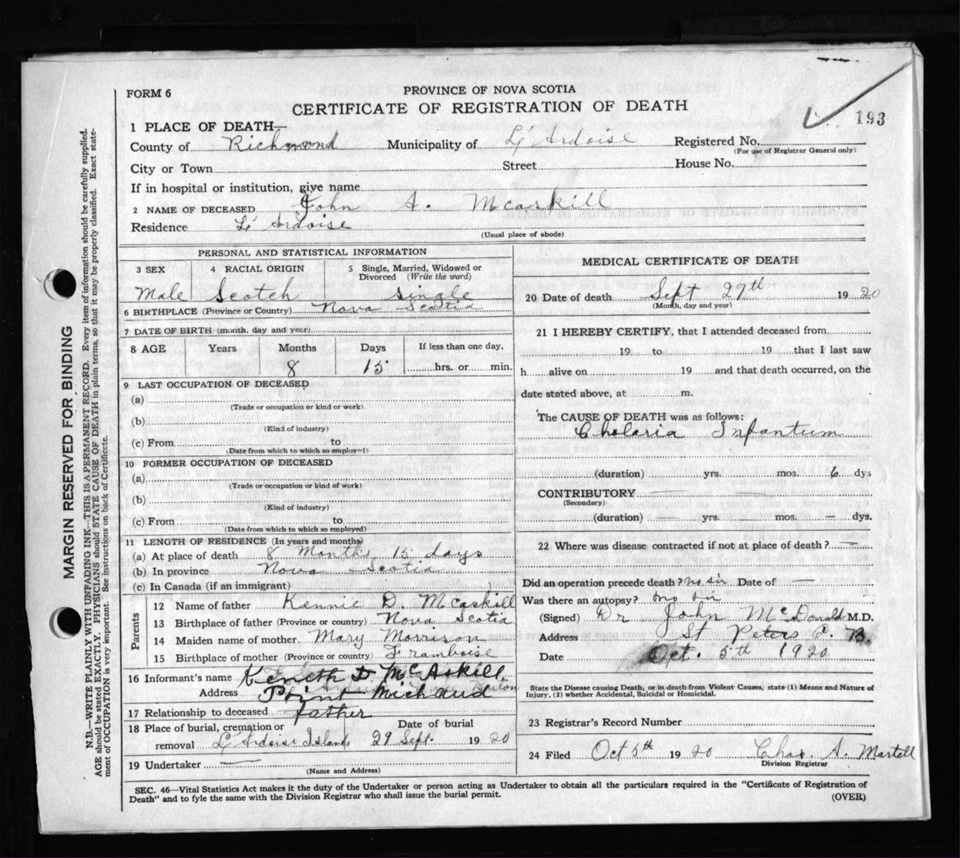 FORM 6
PROVINCE OF NOVA SCOTIA
CERTIFICATE OF REGISTRATION OF DEATH
193
1 PLACE OF DEATH—
County of Richmond Municipality of L'Ardoise Registered No.
(For use of Registrar General only)
City or Town Street House No.
If in hospital or institution, give name
2 NAME OF DECEASED John A. Mcaskill
Residence L'Ardoise
(Usual place of abode)
PERSONAL AND STATISTICAL INFORMATION
3 SEX 4 RACIAL ORIGIN 5 Single, Married, Widowed or Divorced (Write the word)
Male Scotch Single
6 BIRTHPLACE (Province or Country) Nova Scotia
7 DATE OF BIRTH (month, day and year)
8 AGE Years Months Days If less than one day,
8 15 hrs. or min.
9 LAST OCCUPATION OF DECEASED
(a)
(Trade or occupation or kind or work)
(b)
(Kind of industry)
(c) From to
(Date from which to which so employed)
10 FORMER OCCUPATION OF DECEASED
(a)
(Trade or occupation or kind of work)
(b)
(Kind of industry)
(c) From to
(Date from which to which so employed)
11 LENGTH OF RESIDENCE (In years and months)
(a) At place of death 8 Months 15 days
(b) In province Nova Scotia
(c) In Canada (if an immigrant)
Parents
12 Name of father Kennie D. Mcaskill
13 Birthplace of father (Province or country) Nova Scotia
14 Maiden name of mother Mary Morrison
15 Birthplace of mother (Province or country) Framboise
16 Informant's name Keneth D McAskill
Address Point Michaud
17 Relationship to deceased father
18 Place of burial, cremation or removal L'Ardoise Island Date of burial 29 Sept. 1920
19 Undertaker —
(Name and Address)
MEDICAL CERTIFICATE OF DEATH
20 Date of death Sept 27th 1920
(Month, day and year)
21 I HEREBY CERTIFY, that I attended deceased from
19 to 19 that I last saw
h alive on 19 and that death occurred, on the
date stated above, at m.
The CAUSE OF DEATH was as follows:
Cholaria Infantum
(duration) yrs. mos. 6 dys
CONTRIBUTORY —
(Secondary)
(duration) — yrs. — mos. — dys.
22 Where was disease contracted if not at place of death? —
Did an operation precede death? no sir Date of —
Was there an autopsy? no sir
(Signed) Dr John McDonald M.D.
Address St Peters C. B.
Date Oct. 5th 1920
State the Disease causing Death, or in death from Violent Causes, state (1) Means and Nature of
Injury, (2) whether Accidental, Suicidal or Homicidal.
23 Registrar's Record Number
24 Filed Oct 5th 1920 Chas. A. Martell
Division Registrar
SEC. 46—Vital Statistics Act makes it the duty of the Undertaker or person acting as Undertaker to obtain all the particulars required in the "Certificate of Registration of
Death" and to fyle the same with the Division Registrar who shall issue the burial permit.
(OVER)
MARGIN RESERVED FOR BINDING
N.B.—WRITE PLAINLY WITH UNFADING INK—THIS IS A PERMANENT RECORD. Every item of information should be carefully supplied.
AGE should be stated EXACTLY. PHYSICIANS should STATE CAUSE OF DEATH in plain terms, so that it may be properly classified. Exact state-
ment of OCCUPATION is very important. See instructions on back of Certificate.